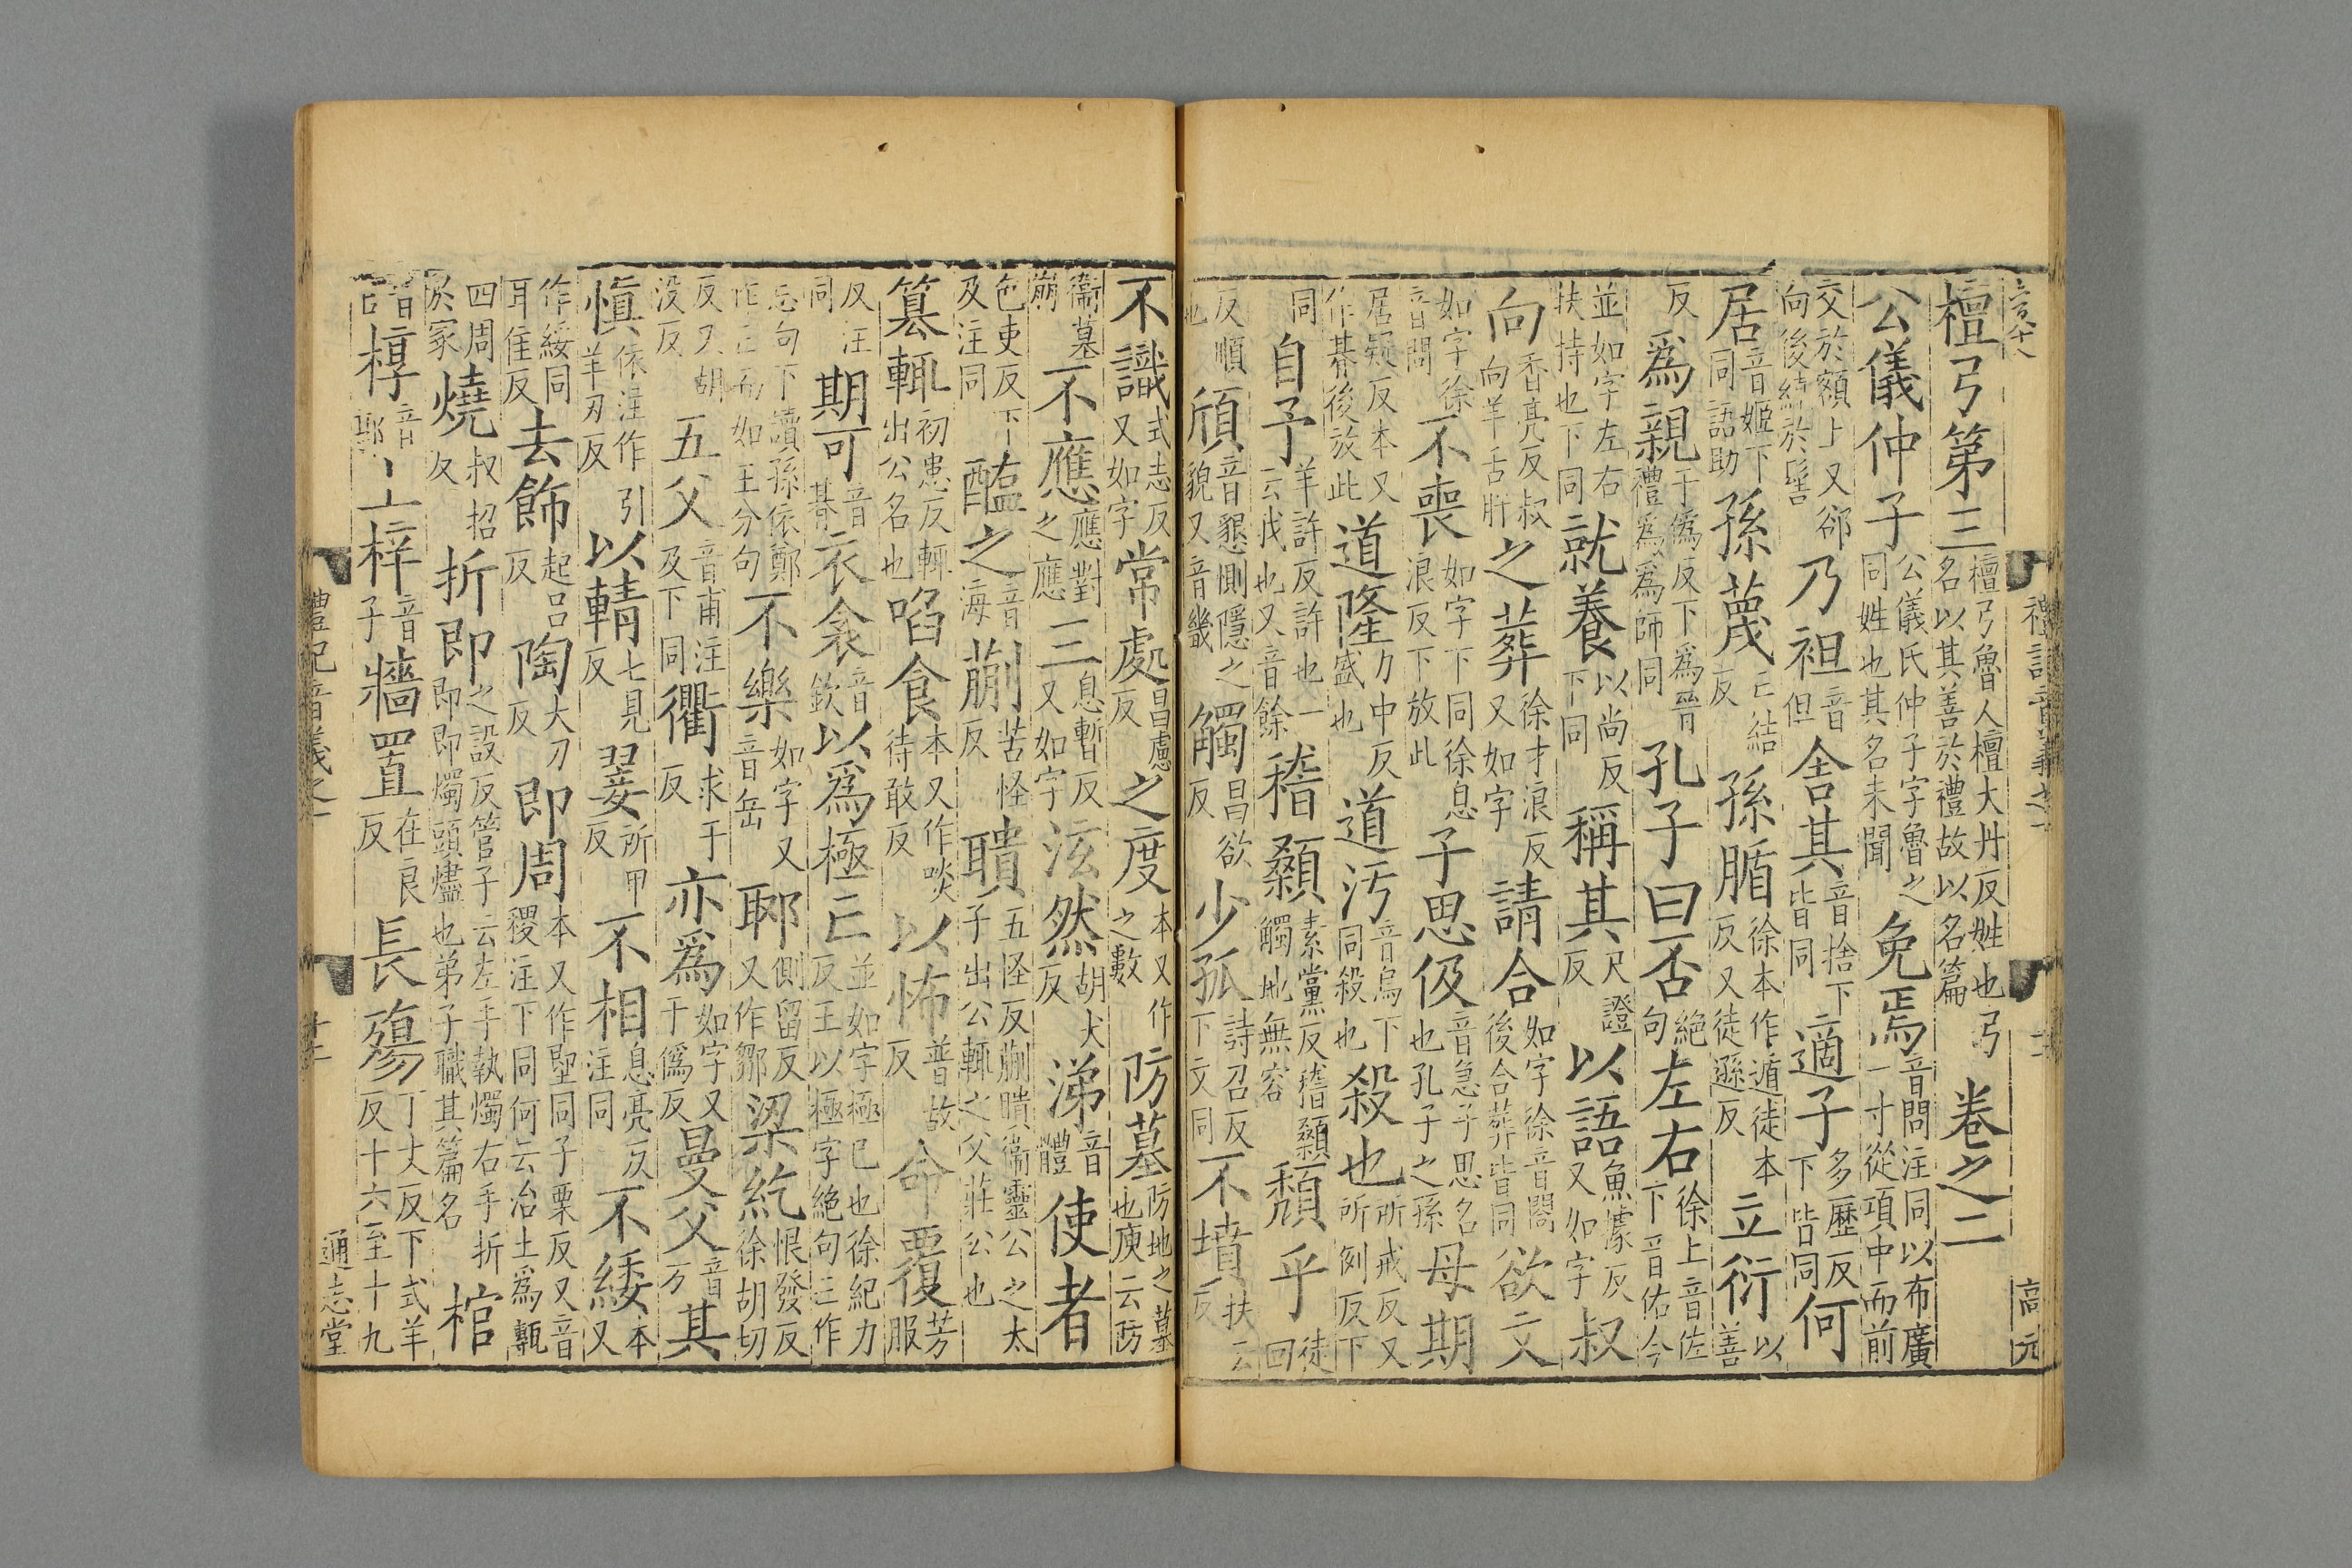 檀弓第三檀弓魯人檀大丹反姓也弓名以其善於禮故以名篇卷之二
公儀仲子公儀氏仲子字魯之同姓也其名未聞免焉音問注同以布廣一寸從項中而前
交於額上又郤向後繞於髻乃袒音但舍其音捨下皆同適子多歷反下皆同何
居音姬下同語助孫蔑亡結反孫腯徐本作遁徒本反又徒遜反立衍以善
反為親于偽反下為晉禮為為師同孔子曰否絕句左右徐上音佐下音佑今
並如字左右扶持也下同就養以尚反下同稱其尺證反以語魚據反又如字叔
向香亮反叔向羊舌肸之葬徐才浪反又如字請合如字徐音閤後合葬皆同欲文
如字徐音問不喪如字下同徐息浪反下放此子思伋音急子思名也孔子之孫母期
居疑反本又作朞後放此道隆力中反盛也道汚音烏下同殺也殺也所戒反又所例反下
同自予羊許反許也一云我也又音餘稽顙素黨反稽顙觸地無容頹乎徒回
反順也頎音懇惻隱之貌又音畿觸昌欲反少孤詩召反下文同不墳扶云反
不識式志反又如字常處昌慮反之度本又作之數防墓防地之墓也庾云防
衞墓崩不應應對之應三息暫反又如字泫然胡犬反涕音體使者
色吏反下及注同醢之音海蒯苦怪反聵五怪反蒯聵衞靈公之太子出公輒之父莊公也
篡輒初患反輒出公名也啗食本又作啖待敢反以怖普故反命覆芳服
反注同期可音朞衣衾音欽以為極亡並如字極已也徐紀力反王以極字絕句亡作
忘句下讀孫依鄭作亡而如王分句不樂如字又音岳郰側留反又作鄹梁紇恨發反徐胡切
反又胡沒反五父音甫注及下同衢求于反亦為如字又于偽反曼父音万其
慎依注作引羊刃反以輤七見反翣所甲反不相息亮反注同不緌本又
作綏同耳隹反去飾起呂反陶大刀反即周本又作堲同子栗反又音稷注下同何云冶土為甎
四周於家燒叔招反折即之設反管子云左手執燭右手折即即燭頭燼也弟子職其篇名棺
音官椁音郭上梓音子牆置在良反長殤丁丈反下式羊反十六至十九
禮記音義之一
通志堂
高元